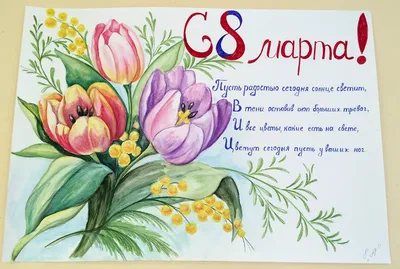 С 8 марта!
Пусть радостью сегодня солнце светит,
В тени оставив сно больших тревог,
И все цветы, какие есть на свете,
Цветут сегодня пусть у ваших ног.